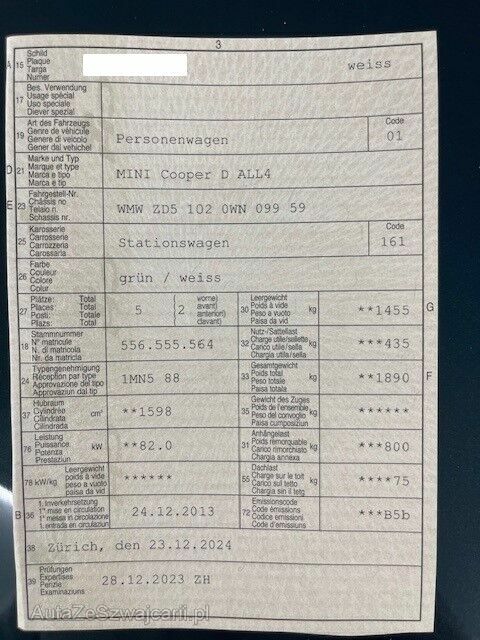 3
A 15 Schild Plaque Targa Numer weiss
17 Bes. Verwendung Usage spécial Uso speciale Diever spezial
19 Art des Fahrzeugs Genre de véhicule Genere di veicolo Gener dal vehichel Personenwagen Code 01
D 21 Marke und Typ Marque et type Marca e tipo Marca e tip MINI Cooper D ALL4
E 23 Fahrgestell-Nr. Châssis no Telaio n. Schassis nr. WMW ZD5 102 0WN 099 59
25 Karosserie Carrosserie Carrozzeria Carossaria Stationswagen Code 161
26 Farbe Couleur Colore Colur grün / weiss
27 Plätze: Total Places Total Posti: Totale Plazs: Total 5 2 vorne) avant) anteriori) davant) 30 Leergewicht Poids à vide Peso a vuoto Paisa da vid kg **1455 G
18 Stammnummer N° matricule N. di matricola Nr. da matricla 556.555.564 32 Nutz-/Sattellast Charge utile/sellette Carico utile/sella Chargia utila/sella kg ***435
24 Typengenehmigung Réception par type Approvazione del tipo Approvaziun dal tip 1MN5 88 33 Gesamtgewicht Poids total Peso totale Paisa totala kg **1890 F
37 Hubraum Cylindrée Cilindrata Cilindrada cm³ **1598 35 Gewicht des Zuges Poids de l'ensemble Peso del convoglio Paisa cumposiziun kg ******
76 Leistung Puissance Potenza Prestaziun kW **82.0 31 Anhängelast Poids remorquable Carico rimorchiato Chargia annexa kg ***800
78 kW/kg Leergewicht poids à vide peso a vuoto paisa da vid ****** 55 Dachlast Charge sur le toit Carico sul tetto Chargia sin il tetg kg ****75
B 36 1. Inverkehrsetzung 1re mise en circulation 1a messa in circolazione 1. entrada en circulaziun 24.12.2013 72 Emissionscode Code émissions Codice emissioni Code d'emissiuns ***B5b
38 Zürich, den 23.12.2024
39 Prüfungen Expertises Perizie Examinaziuns 28.12.2023 ZH
AutaZeSzwajcarii.pl